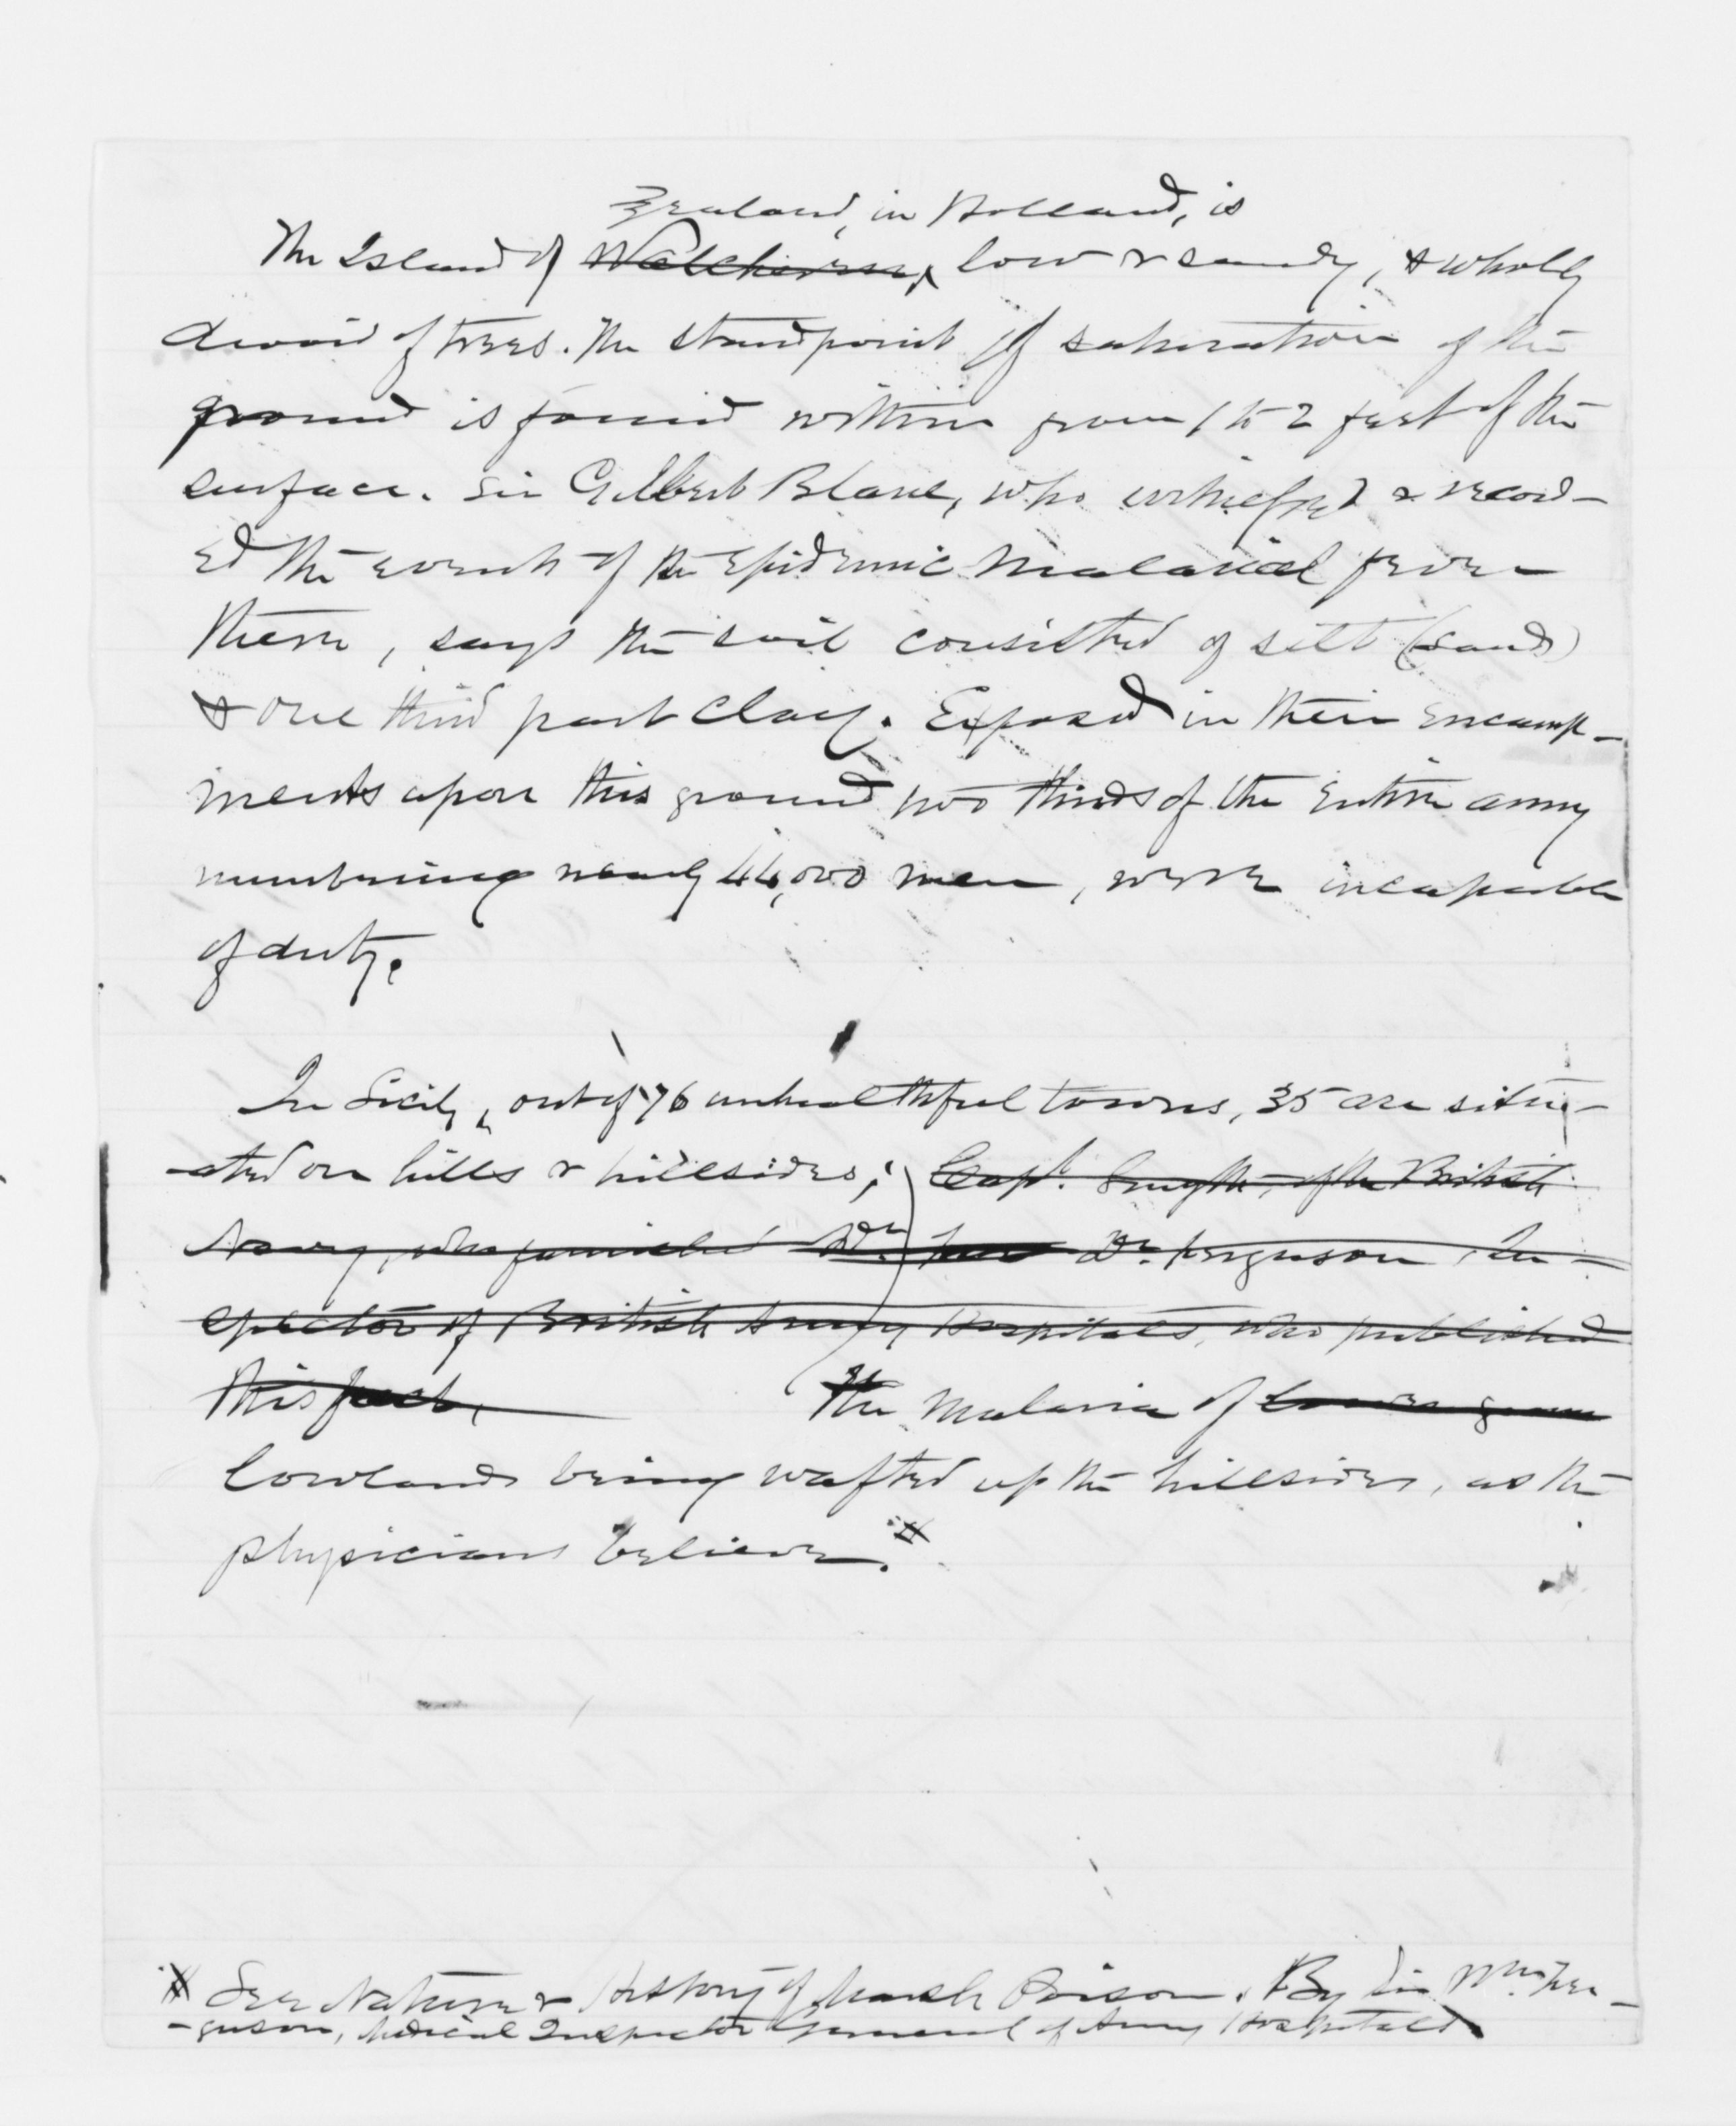 Zealand, in Holland, is
The Island of Walcheren, low & sandy, & wholly
devoid of trees. The standpoint of saturation of the
ground is found within from 1 to 2 feet of the
surface. Sir Gilbert Blane, who witnessed & record-
ed the events of the epidemic malarial fever
there, says the soil consisted of silt (sand)
& one third part clay. Exposed in their encamp-
ments upon this ground two thirds of the entire army
numbering nearly 44,000 men, were incapable
of duty.
In Sicily, out of 76 unhealthful towns, 35 are situ-
-ated on hills & hillsides; Capt. Smyth, of the British
Navy, who furnished Dr. Dr. Ferguson, In-
spector of British Army Hospitals, who published
this fact, the malaria of lower
lowlands being wafted up the hillsides, as the
physicians believe.*
* See Nature & History of Marsh Poison. By Sir Wm. Fer-
-guson, Medical Inspector General of Army Hospitals